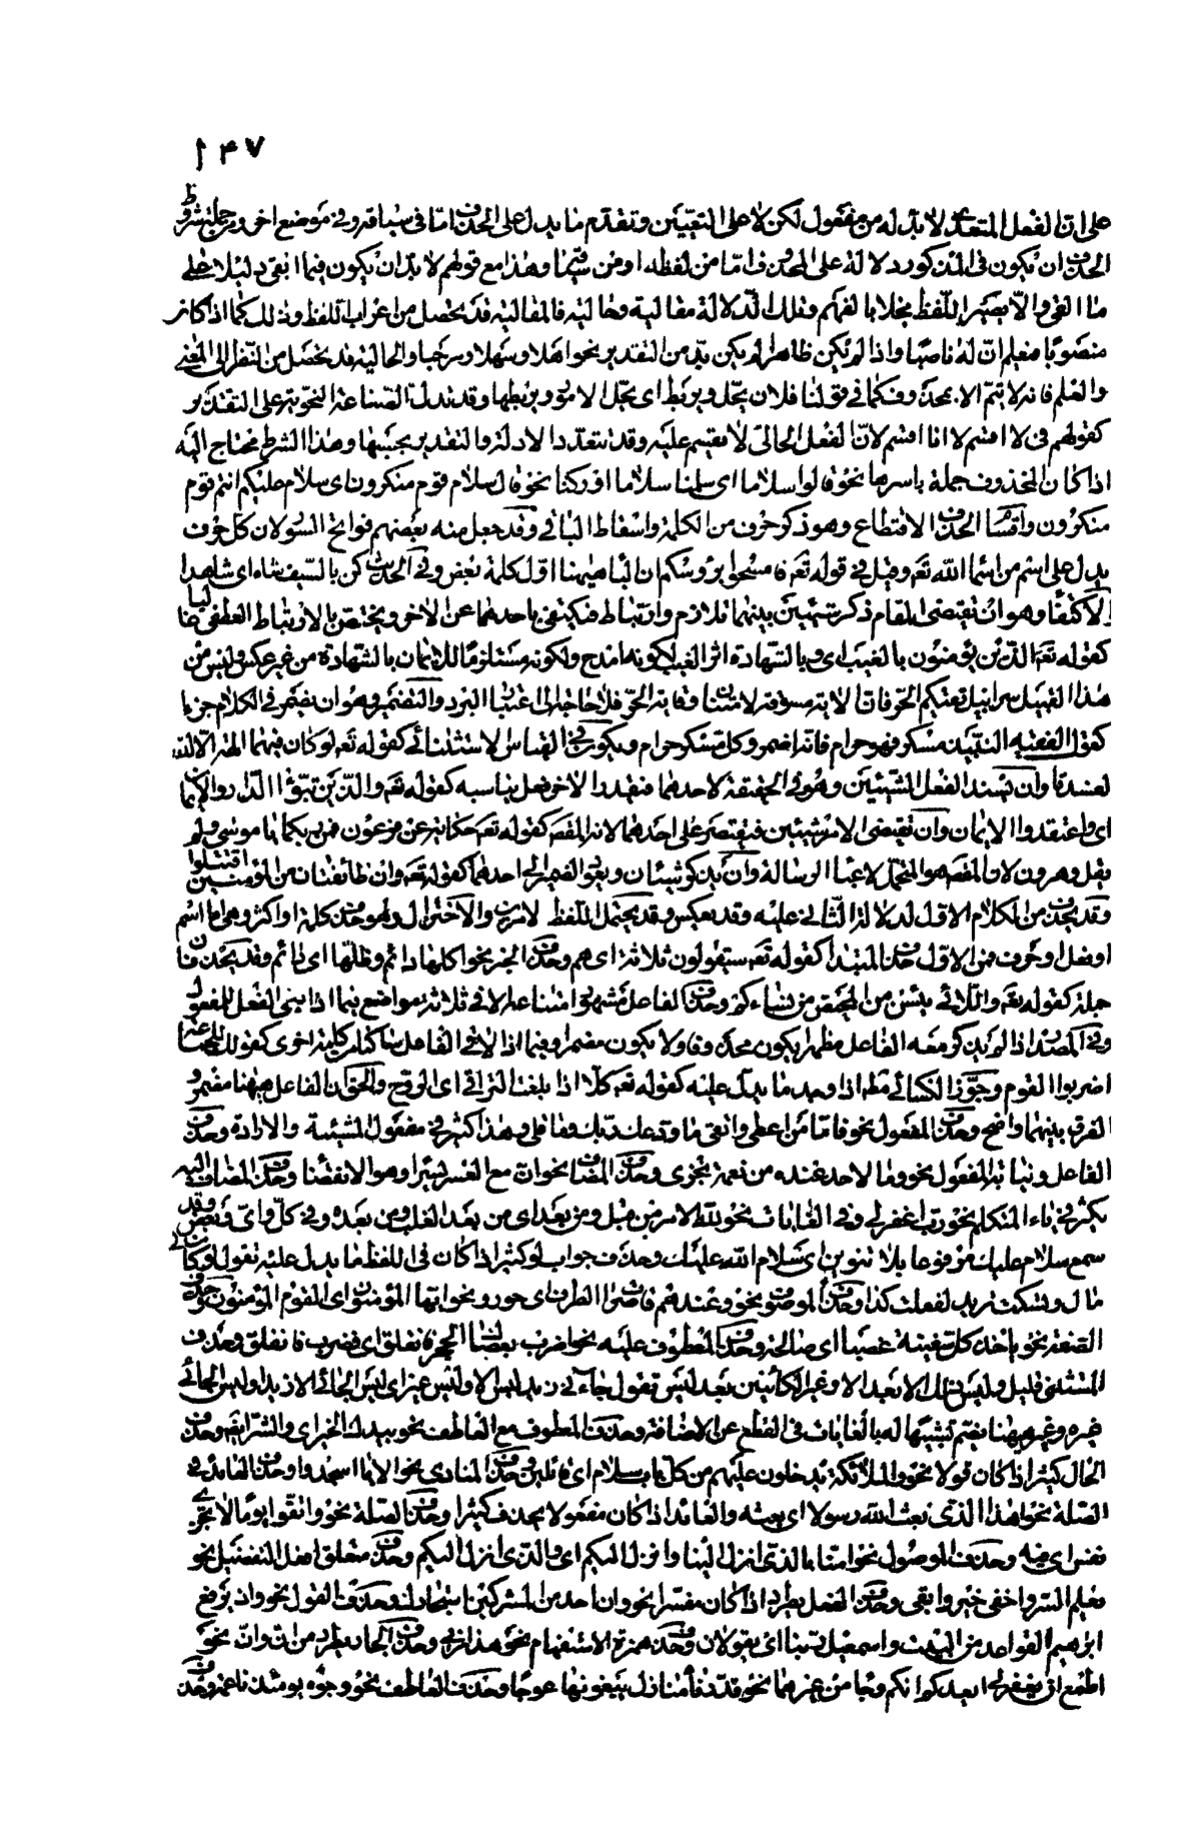 ١٤٧
على ان الفعل المتعدى لا بد له من مفعول لكن لا على التعيين وتقدم ما يدل على الحذف اما فى سياقه او فى موضع اخر ومن جملة شروط
الحذف ان يكون فى المذكور دلالة على المحذوف اما من لفظه او من سياقه وهذا مع قولهم لا بد ان يكون فيما ابقى دليلا على
ما القى والا يصير اللفظ مخلا بالفهم وتلك الدلالة مقالية وحالية فالمقالية قد يحصل من اعراب اللفظ وذلك كما اذا كان
منصوبا فيعلم ان له ناصبا واذا لم يكن ظاهرا لم يكن بد من التقدير نحو اهلا وسهلا ومرحبا والحالية قد يحصل من النظر الى المعنى
والعلم فانه لا يتم الا بمحذوف كما فى قولنا فلان يحل ويربط اى يحل الامور ويربطها وقد تدل الصناعة النحوية على التقدير
كقولهم فى لا اقسم لانا اقسم لان الفعل الحالى لا يقسم عليه وقد تتعدد الادلة والتقدير بحسبها وهذا الشرط محتاج اليه
اذا كان المحذوف جملة باسرها نحو قالوا سلاما اى سلمنا سلاما او ركنا نحو قال سلام قوم منكرون اى سلام عليكم انتم قوم
منكرون واقسام الحذف الاقتطاع وهو ذكر حرف من الكلمة واسقاط الباقى وقد جعل منه بعضهم فواتح السور لان كل حرف
يدل على اسم من اسماء الله تعه وقيل فى قوله تعه فامسحوا برؤسكم ان الباء ههنا اول كلمة بعض وفى الحديث كفى بالسيف شاء اى شاهدا
والاكتفاء وهو ان يقتضى المقام ذكر شيئين بينهما تلازم وارتباط فيكتفى باحدهما عن الاخر ويختص بالارتباط العطفى غالبا
كقوله تعه الذين يؤمنون بالغيب اى وبالشهادة اثر الغيب لكونه امدح ولكونه مستلزما للايمان بالشهادة من غير عكس وليس من
هذا القبيل سرابيل تقيكم الحر فان الاية مسوقة لامتنان وقاية الحر فلا حاجة الى اعتبار البرد والتضمير وهو ان يضمر فى الكلام جزءا
كقول الفقيه النبيذ مسكر فهو حرام فانه اضمر وكل مسكر حرام ويكون فى القياس الاستثنائى كقوله تعه لو كان فيهما الهة الا الله
لفسدتا وان يسند الفعل لشيئين وهو فى الحقيقة لاحدهما فيقدر للاخر فعل يناسبه كقوله تعه والذين تبوؤا الدار والايمان
اى واعتقدوا الايمان وان يقتضى الامر شيئين فيقتصر على احدهما لانه المقصود كقوله تعه حكاية عن فرعون فمن ربكما يا موسى ولم
يقل وهرون لان المقصود هو المتحمل لاعباء الرسالة وان يذكر شيئان ويعود الضمير الى احدهما كقوله تعه وان طائفتان من المؤمنين اقتتلوا
وقد يحذف من الكلام الاول لدلالة الثانى عليه وقد يعكس وقد يحتمل اللفظ الامرين والاختزال وهو حذف كلمة او اكثر وهى اما اسم
او فعل او حرف فمن الاول حذف المبتدا كقوله تعه سيقولون ثلاثة اى هم وحذف الخبر نحو اكلها دائم وظلها اى دائم وقد يحذفان
جملة كقوله تعه واللائى يئسن من المحيض من نساءكم وحذف الفاعل مشهور امتناعه الا فى ثلاثة مواضع فيما اذا بنى الفعل للمفعول
وفى المصدر اذا لم يذكر معه الفاعل مظهرا يكون محذوفا ولا يكون مضمرا وفيما اذا لاقى الفاعل ساكنا من كلمة اخرى كقولك للجماعة
اضربوا القوم وجوز الكسائى مط اذا وجد ما يدل عليه كقوله تعه كلا اذا بلغت التراقى اى الروح والحق ان الفاعل ههنا مضمر و
الفرق بينهما واضح وحذف المفعول نحو فاما من اعطى واتقى ما ودعك ربك وما قلى وهذا كثير فى مفعول المشيئة والارادة وحذف
الفاعل ونيابة المفعول نحو وما لاحد عنده من نعمة تجزى وحذف المضاف نحو ان مع العسر يسرا وهو الا نفسنا وحذف المضاف اليه
يكثر فى ياء المتكلم نحو رب اغفر لى وفى الغايات نحو لله الامر من قبل ومن بعد اى من بعد الغلب ومن بعده وفى كل واى وبعض وقد
سمع سلام عليك مرفوعا بلا تنوين اى سلام الله عليك وحذف جواب لو كثير اذا كان فى اللفظ ما يدل عليه تقول لو كان لى
مال وتسكت تريد لفعلت كذا وحذف الموصوف نحو وعندهم قاصرات الطرف اى حور ونحو ايها المؤمنون اى القوم المؤمنون وحذف
الصفة نحو ياخذ كل سفينة غصبا اى صالحة وحذف المعطوف عليه نحو اضرب بعصاك الحجر فانفلق اى فضرب فانفلق وحذف
المستثنى قليل وليس ذلك الا بعد الا وغير الكائنين بعد ليس تقول جاءنى زيد ليس الا وليس غير اى ليس الجائى الا زيد او ليس الجائى
غيره وغير ههنا بضم تشبيها له بالغايات فى القطع عن الاضافة وحذف المعطوف مع العاطف نحو بيدك الخير اى والشر ايضا وحذف
الحال كثير اذا كان قولا نحو والملائكة يدخلون عليهم من كل باب سلام اى قائلين وحذف المنادى نحو الا يا اسجدوا وحذف العائد فى
الصلة نحو اهذا الذى بعث الله رسولا اى بعثه والعائد اذا كان مفعولا يحذف كثيرا وحذف الصلة نحو واتقوا يوما لا تجزى
نفس اى فيه وحذف الموصول نحو امنا بالذى انزل الينا وانزل اليكم اى والذى انزل اليكم وحذف متعلق افعل التفضيل نحو
يعلم السر واخفى خير وابقى وحذف الفعل يطرد اذا كان مفسرا نحو وان احد من المشركين استجارك وحذف القول نحو واذ يرفع
ابرهيم القواعد من البيت واسمعيل ربنا اى يقولان وحذف همزة الاستفهام نحو هذا ربى وحذف الجار يطرد من ان وان نحو
اطمع ان يغفر لى ايعدكم انكم وجا من غيرهما نحو قدرناه منازل يبغونها عوجا وحذف العاطف نحو وجوه يومئذ ناعمة وحذف